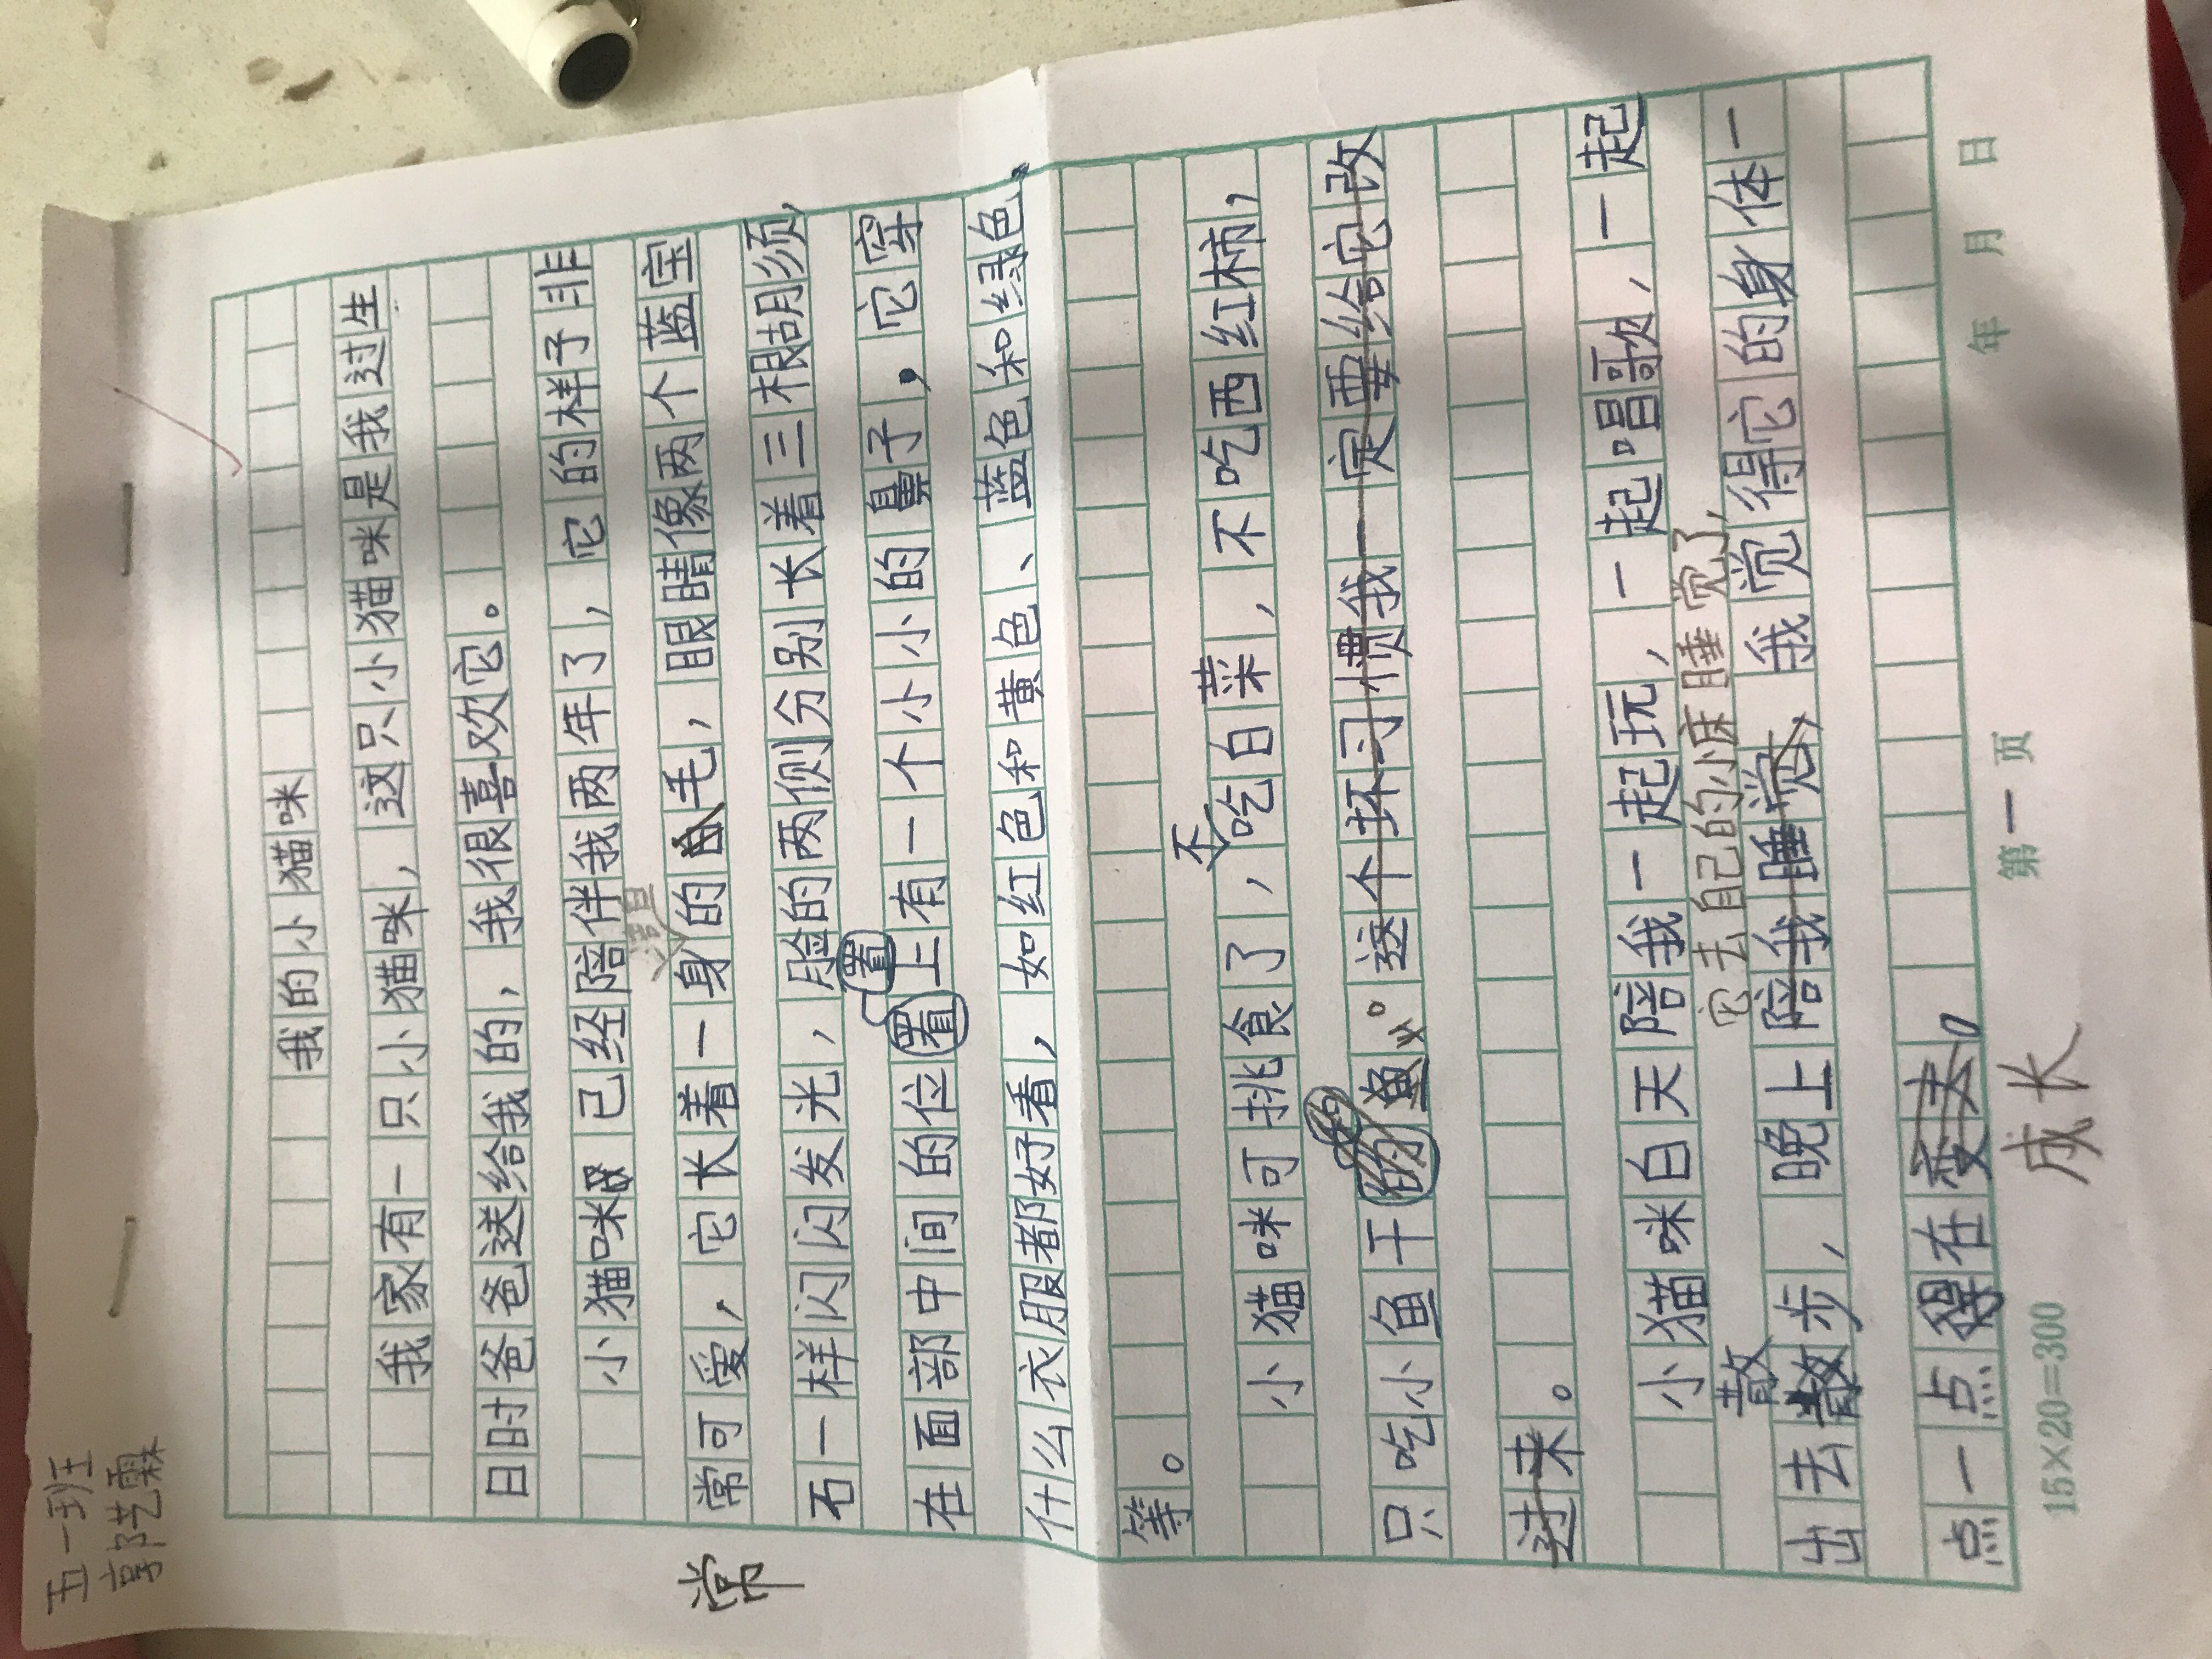 五一班王
郭艺霖
我的小猫咪
我家有一只小猫咪，这只小猫咪是我过生
日时爸爸送给我的，我很喜欢它。
小猫咪已经陪伴我两年了，它的样子非
常可爱，它长着一身的毛，眼睛像两个蓝宝
常
石一样闪闪发光，脸的两侧分别长着三根胡须，
置
在面部中间的位置上有一个小小的鼻子，它穿
什么衣服都好看，如红色和黄色、蓝色和绿色
等。
不
小猫咪可挑食了，吃白菜，不吃西红柿，
只吃小鱼干鱼。这个坏习惯我一定要给它改
过来。
小猫咪白天陪我一起玩，一起唱歌，一起
散
它去自己的小床睡觉了，
出去散步，晚上陪我睡觉，我觉得它的身体一
点一点得在变大。
成长
15×20=300
第一页
年 月 日